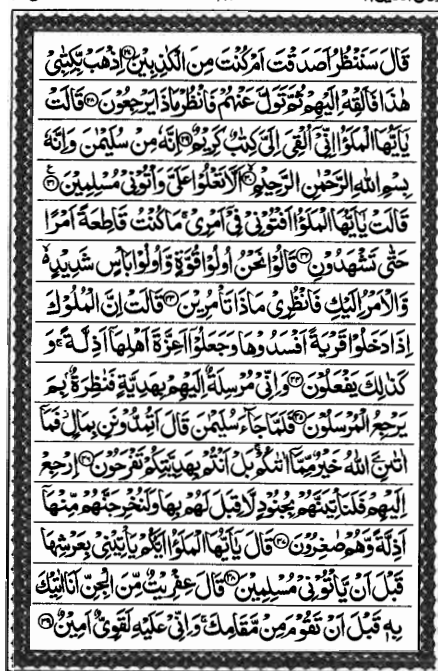 قَالَ سَنَنْظُرُ اَصَدَقْتَ اَمْ كُنْتَ مِنَ الْكٰذِبِيْنَ ﴿۲۷﴾ اِذْهَبْ بِّكِتٰبِيْ
هٰذَا فَاَلْقِهْ اِلَيْهِمْ ثُمَّ تَوَلَّ عَنْهُمْ فَانْظُرْ مَاذَا يَرْجِعُوْنَ ﴿۲۸﴾ قَالَتْ
يٰۤاَيُّهَا الْمَلَؤُا اِنِّيْۤ اُلْقِيَ اِلَيَّ كِتٰبٌ كَرِيْمٌ ﴿۲۹﴾ اِنَّهٗ مِنْ سُلَيْمٰنَ وَاِنَّهٗ
بِسْمِ اللهِ الرَّحْمٰنِ الرَّحِيْمِ ﴿۳۰﴾ اَلَّا تَعْلُوْا عَلَيَّ وَاْتُوْنِيْ مُسْلِمِيْنَ ﴿۳۱﴾
قَالَتْ يٰۤاَيُّهَا الْمَلَؤُا اَفْتُوْنِيْ فِيْۤ اَمْرِيْ ۚ مَا كُنْتُ قَاطِعَةً اَمْرًا
حَتّٰى تَشْهَدُوْنِ ﴿۳۲﴾ قَالُوْا نَحْنُ اُولُوْا قُوَّةٍ وَّاُولُوْا بَاْسٍ شَدِيْدٍ ۙ
وَّالْاَمْرُ اِلَيْكِ فَانْظُرِيْ مَاذَا تَاْمُرِيْنَ ﴿۳۳﴾ قَالَتْ اِنَّ الْمُلُوْكَ
اِذَا دَخَلُوْا قَرْيَةً اَفْسَدُوْهَا وَجَعَلُوْۤا اَعِزَّةَ اَهْلِهَاۤ اَذِلَّةً ۚ وَ
كَذٰلِكَ يَفْعَلُوْنَ ﴿۳۴﴾ وَاِنِّيْ مُرْسِلَةٌ اِلَيْهِمْ بِهَدِيَّةٍ فَنٰظِرَةٌۢ بِمَ
يَرْجِعُ الْمُرْسَلُوْنَ ﴿۳۵﴾ فَلَمَّا جَآءَ سُلَيْمٰنَ قَالَ اَتُمِدُّوْنَنِ بِمَالٍ ۫ فَمَاۤ
اٰتٰىنِۦَ اللهُ خَيْرٌ مِّمَّاۤ اٰتٰىكُمْ ۚ بَلْ اَنْتُمْ بِهَدِيَّتِكُمْ تَفْرَحُوْنَ ﴿۳۶﴾ اِرْجِعْ
اِلَيْهِمْ فَلَنَاْتِيَنَّهُمْ بِجُنُوْدٍ لَّا قِبَلَ لَهُمْ بِهَا وَلَنُخْرِجَنَّهُمْ مِّنْهَاۤ
اَذِلَّةً وَّهُمْ صٰغِرُوْنَ ﴿۳۷﴾ قَالَ يٰۤاَيُّهَا الْمَلَؤُا اَيُّكُمْ يَاْتِيْنِيْ بِعَرْشِهَا
قَبْلَ اَنْ يَّاْتُوْنِيْ مُسْلِمِيْنَ ﴿۳۸﴾ قَالَ عِفْرِيْتٌ مِّنَ الْجِنِّ اَنَا اٰتِيْكَ
بِهٖ قَبْلَ اَنْ تَقُوْمَ مِنْ مَّقَامِكَ ۚ وَاِنِّيْ عَلَيْهِ لَقَوِيٌّ اَمِيْنٌ ﴿۳۹﴾